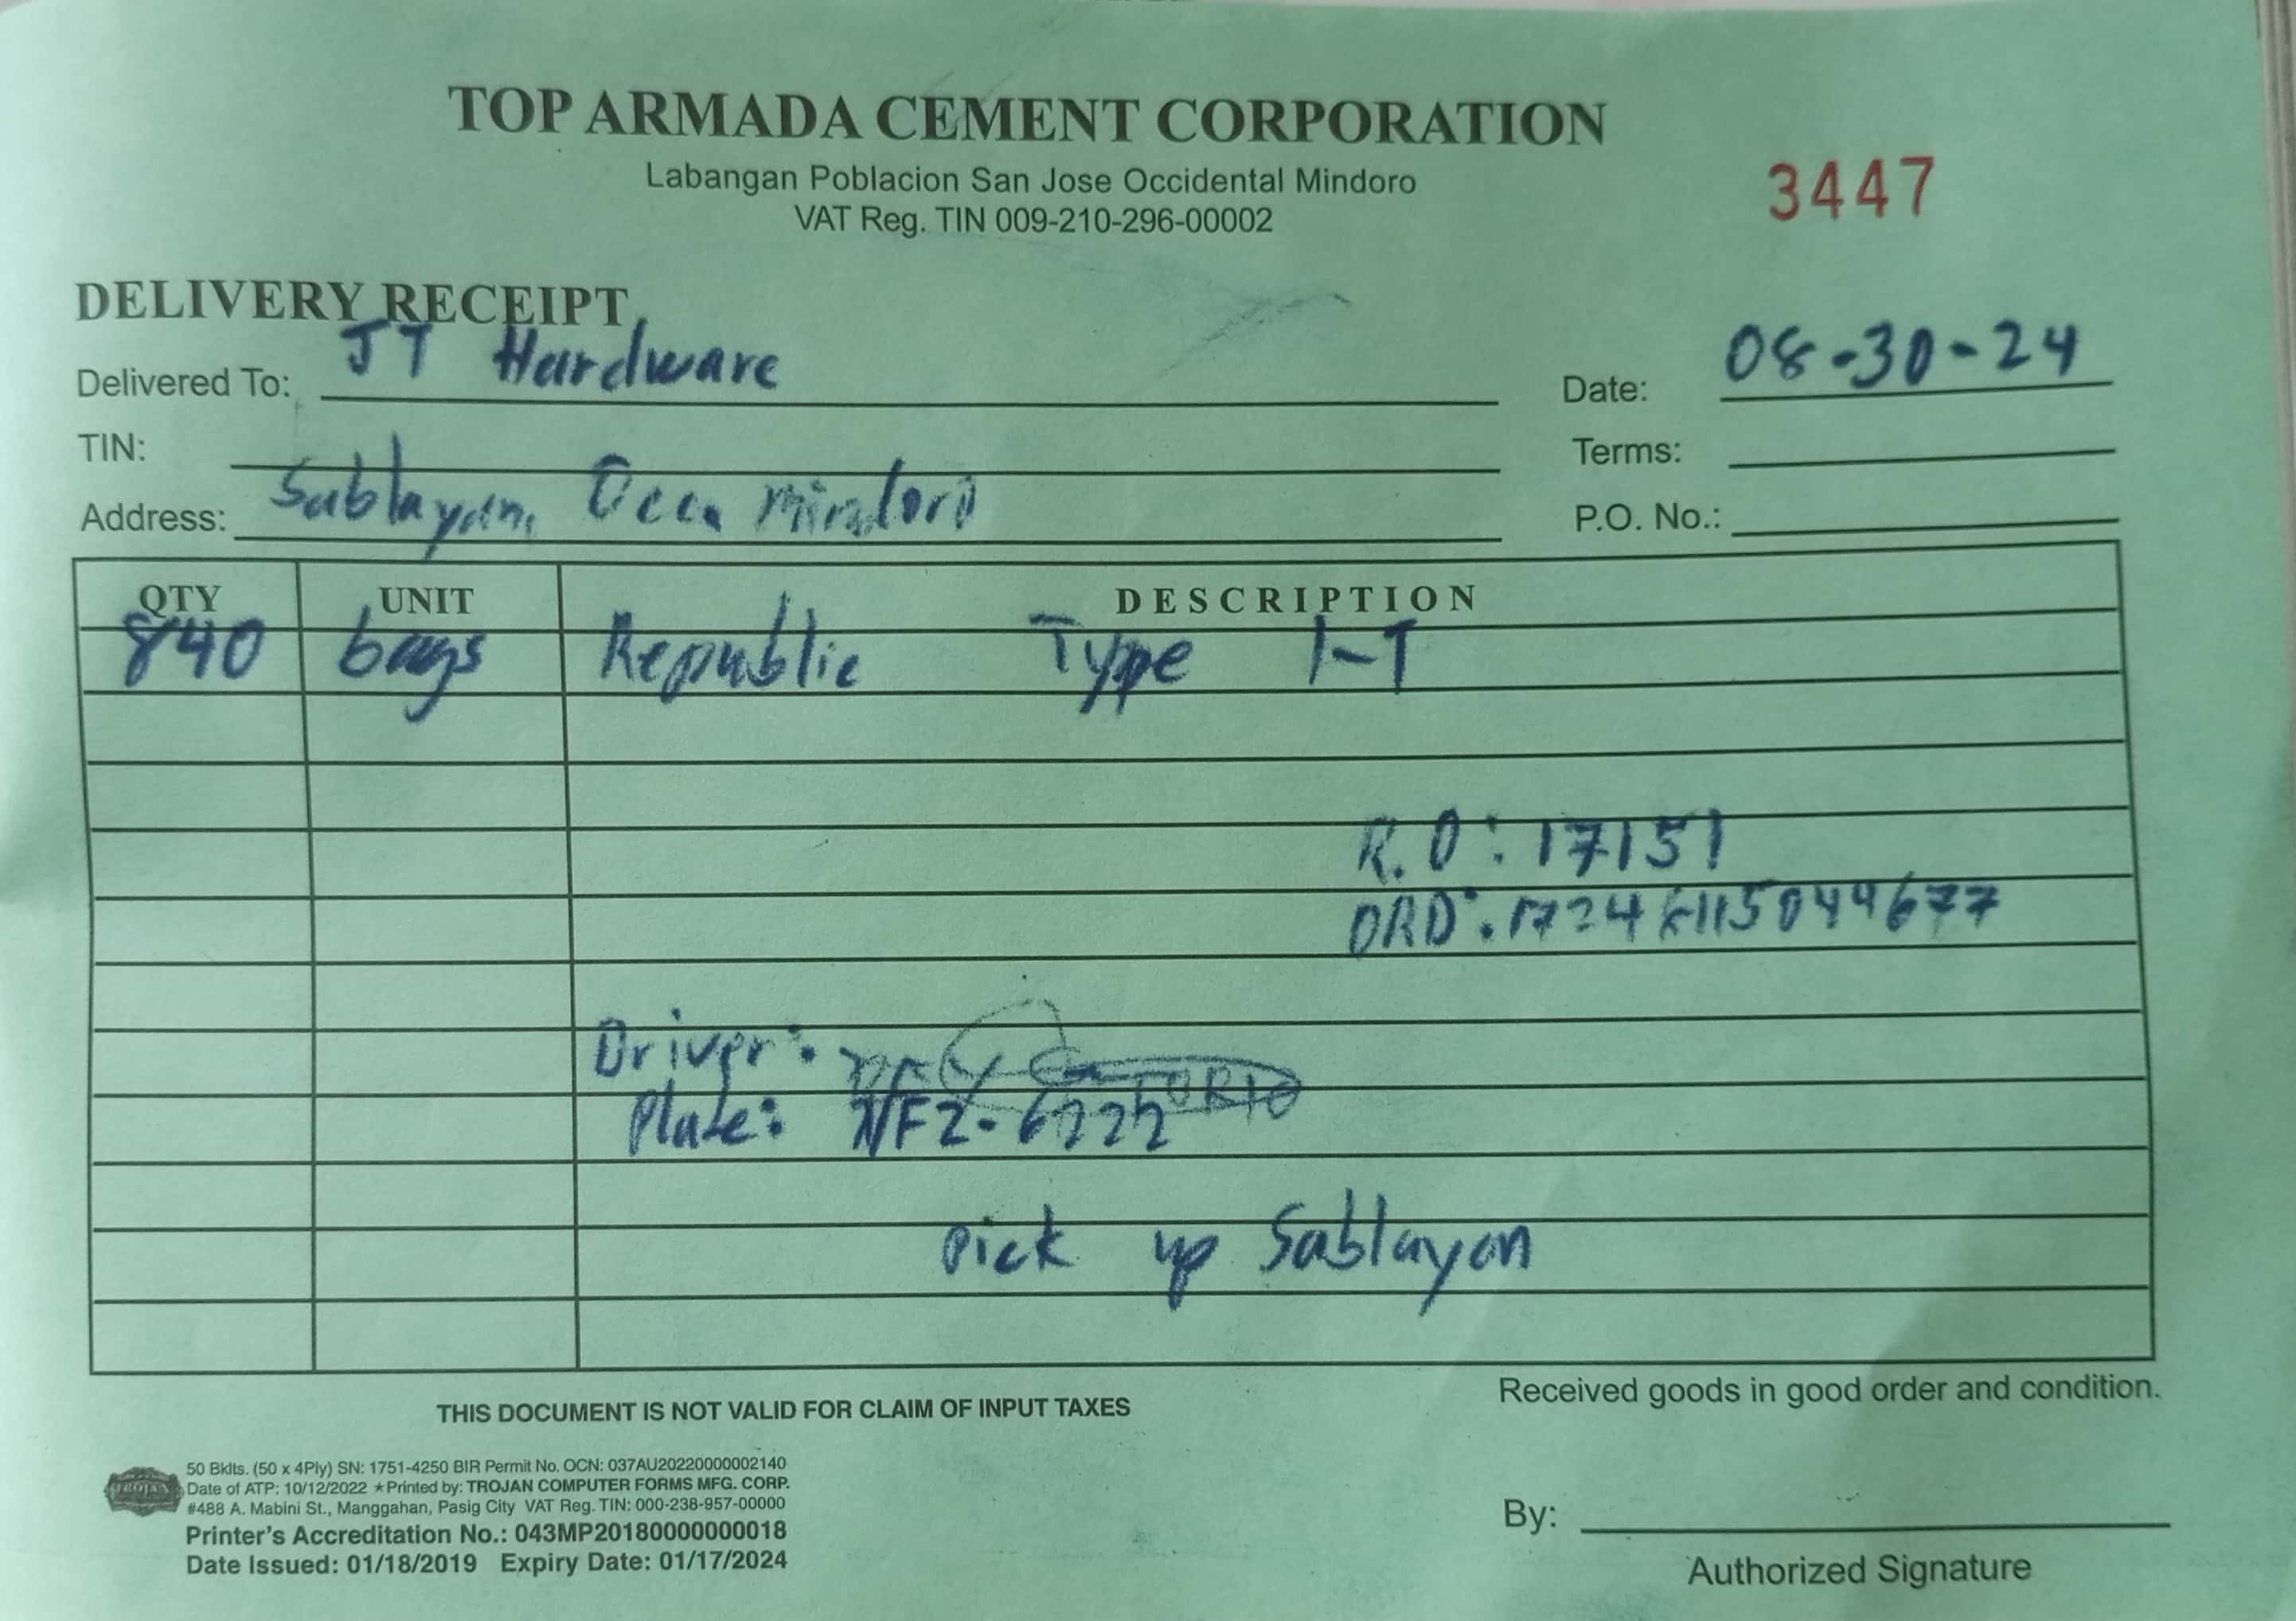 TOP ARMADA CEMENT CORPORATION
Labangan Poblacion San Jose Occidental Mindoro
VAT Reg. TIN 009-210-296-00002
3447
DELIVERY RECEIPT
Delivered To: JT Hardware
Date: 08-30-24
TIN:
Terms:
Address: Sablayan, Occ. Mindoro
P.O. No.:
QTY UNIT DESCRIPTION
840 bags Republic Type 1-T
R.O: 17151
ORD:
Driver:
Plate: NFZ-6222
Pick up Sablayan
THIS DOCUMENT IS NOT VALID FOR CLAIM OF INPUT TAXES
Received goods in good order and condition.
TROJAN
50 Bklts. (50 x 4Ply) SN: 1751-4250 BIR Permit No. OCN: 037AU20220000002140
Date of ATP: 10/12/2022 ★Printed by: TROJAN COMPUTER FORMS MFG. CORP.
#488 A. Mabini St., Manggahan, Pasig City VAT Reg. TIN: 000-238-957-00000
Printer's Accreditation No.: 043MP20180000000018
Date Issued: 01/18/2019 Expiry Date: 01/17/2024
By:
Authorized Signature